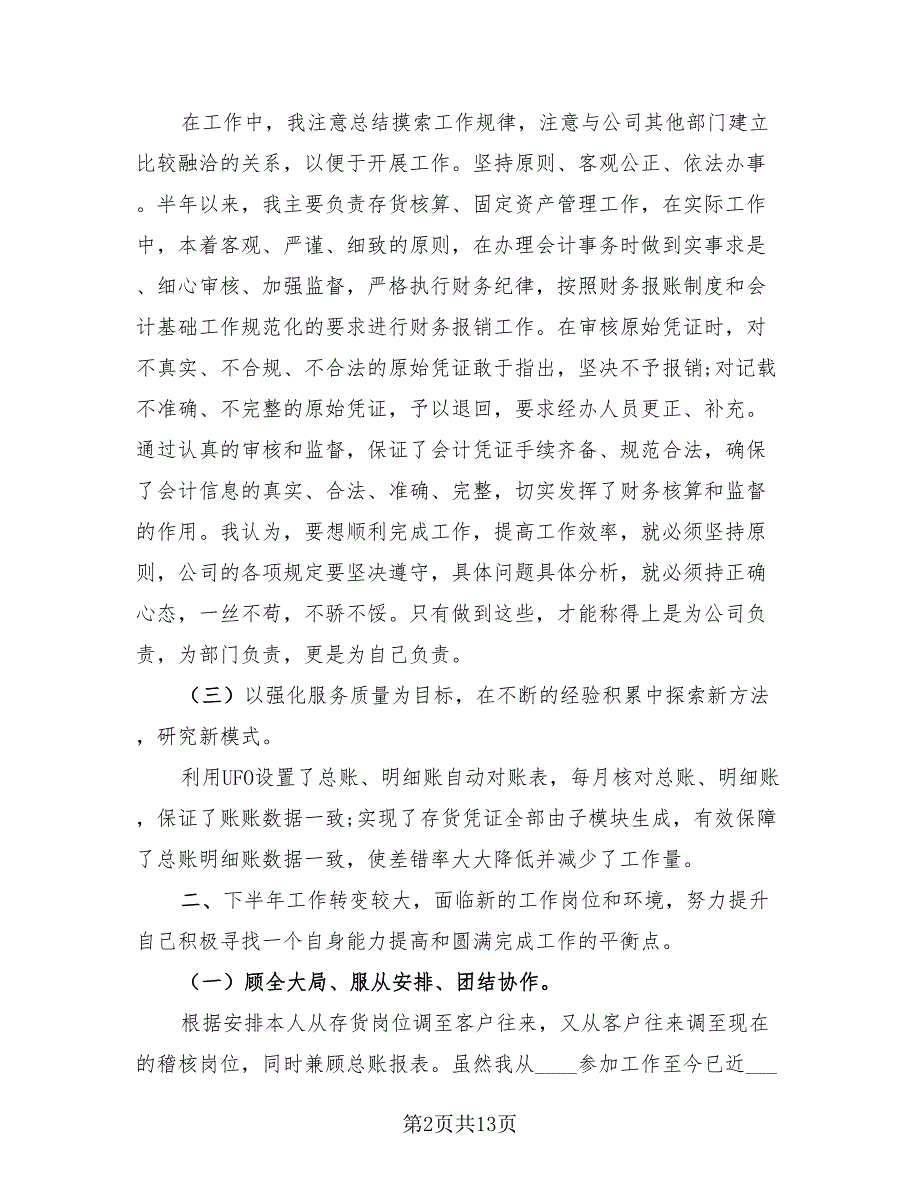 在工作中，我注意总结摸索工作规律，注意与公司其他部门建立
比较融洽的关系，以便于开展工作。坚持原则、客观公正、依法办事
。半年以来，我主要负责存货核算、固定资产管理工作，在实际工作
中，本着客观、严谨、细致的原则，在办理会计事务时做到实事求是
、细心审核、加强监督，严格执行财务纪律，按照财务报账制度和会
计基础工作规范化的要求进行财务报销工作。在审核原始凭证时，对
不真实、不合规、不合法的原始凭证敢于指出，坚决不予报销;对记载
不准确、不完整的原始凭证，予以退回，要求经办人员更正、补充。
通过认真的审核和监督，保证了会计凭证手续齐备、规范合法，确保
了会计信息的真实、合法、准确、完整，切实发挥了财务核算和监督
的作用。我认为，要想顺利完成工作，提高工作效率，就必须坚持原
则，公司的各项规定要坚决遵守，具体问题具体分析，就必须持正确
心态，一丝不苟，不骄不馁。只有做到这些，才能称得上是为公司负
责，为部门负责，更是为自己负责。
（三）以强化服务质量为目标，在不断的经验积累中探索新方法
，研究新模式。
利用UFO设置了总账、明细账自动对账表，每月核对总账、明细账
，保证了账账数据一致;实现了存货凭证全部由子模块生成，有效保障
了总账明细账数据一致，使差错率大大降低并减少了工作量。
二、下半年工作转变较大，面临新的工作岗位和环境，努力提升
自己积极寻找一个自身能力提高和圆满完成工作的平衡点。
（一）顾全大局、服从安排、团结协作。
根据安排本人从存货岗位调至客户往来，又从客户往来调至现在
的稽核岗位，同时兼顾总账报表。虽然我从____参加工作至今已近___
第2页共13页